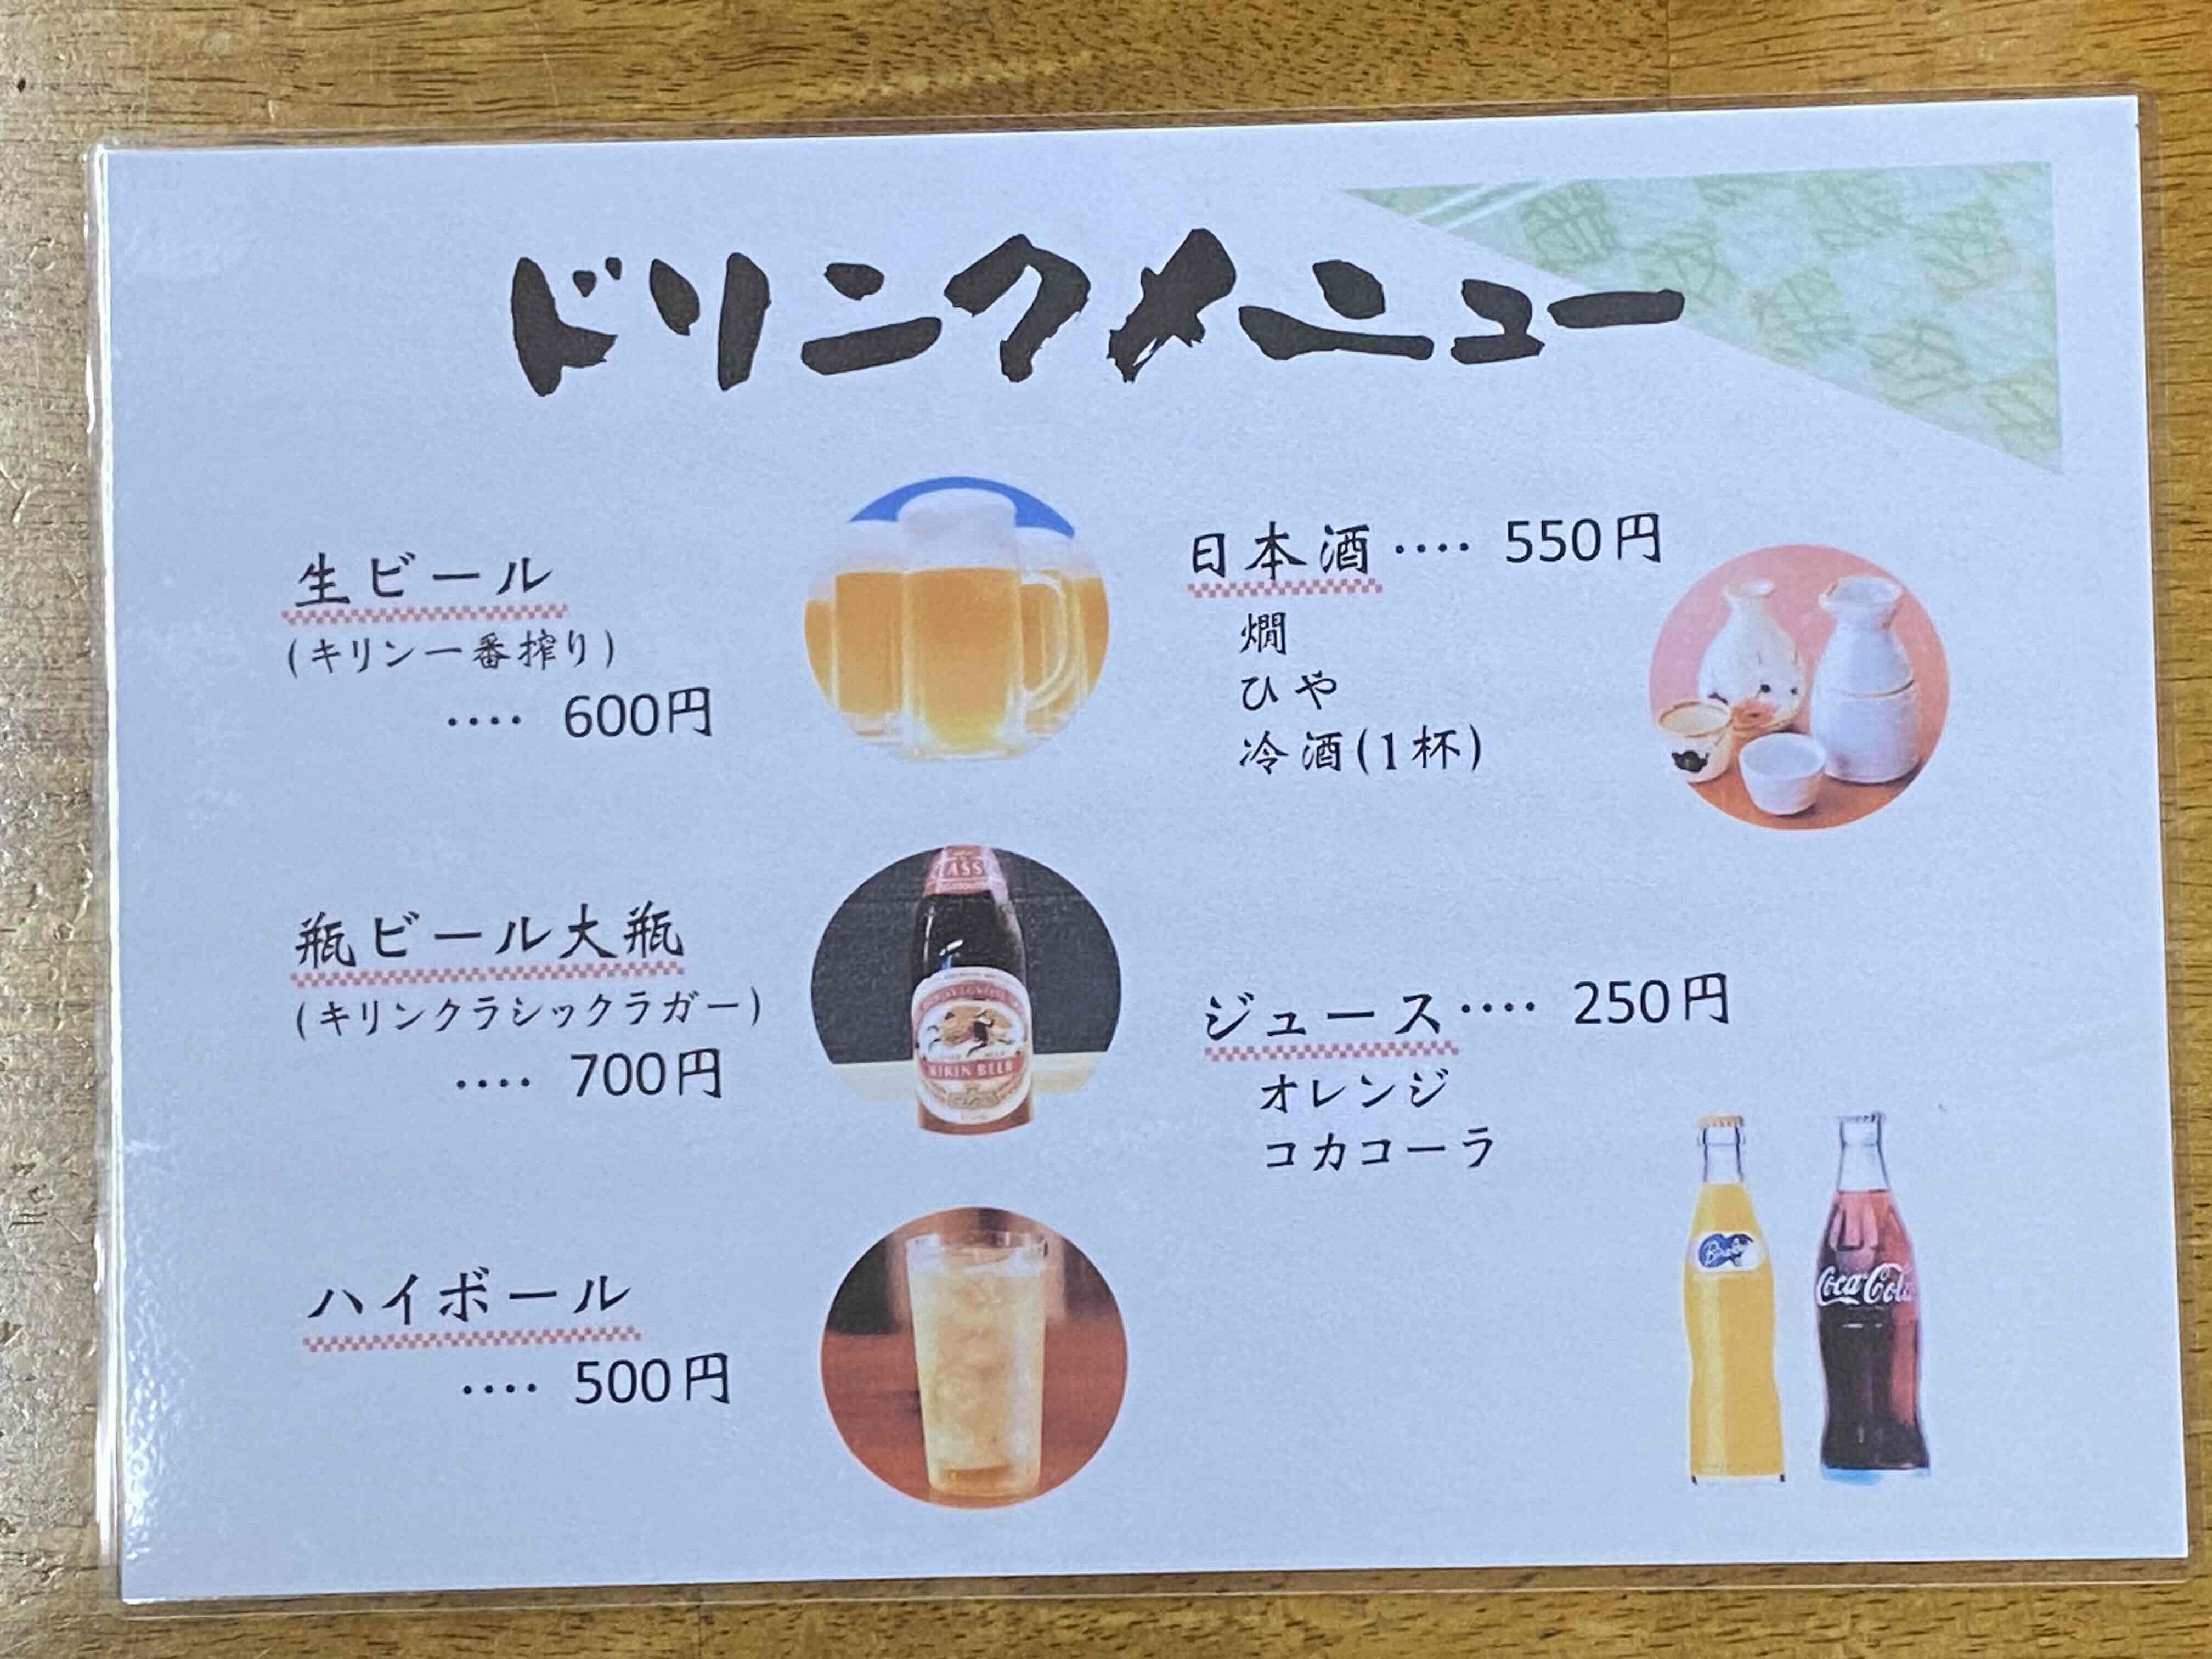 ドリンクメニュー
生ビール
(キリン一番搾り)
···· 600円
瓶ビール大瓶
(キリンクラシックラガー)
···· 700円
ハイボール
···· 500円
日本酒 ···· 550円
燗
ひや
冷酒(1杯)
ジュース ···· 250円
オレンジ
コカコーラ
KIRIN BEER
Coca Cola